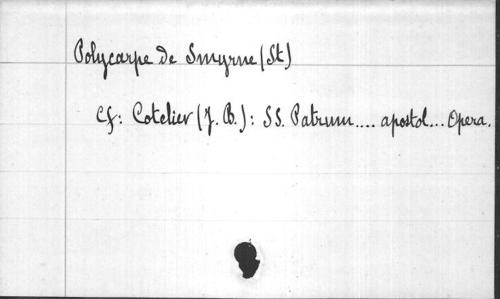 Polycarpe de Smyrne (St)
Cf: Cotelier (J. B.): SS. Patrum.... apostol... Opera.